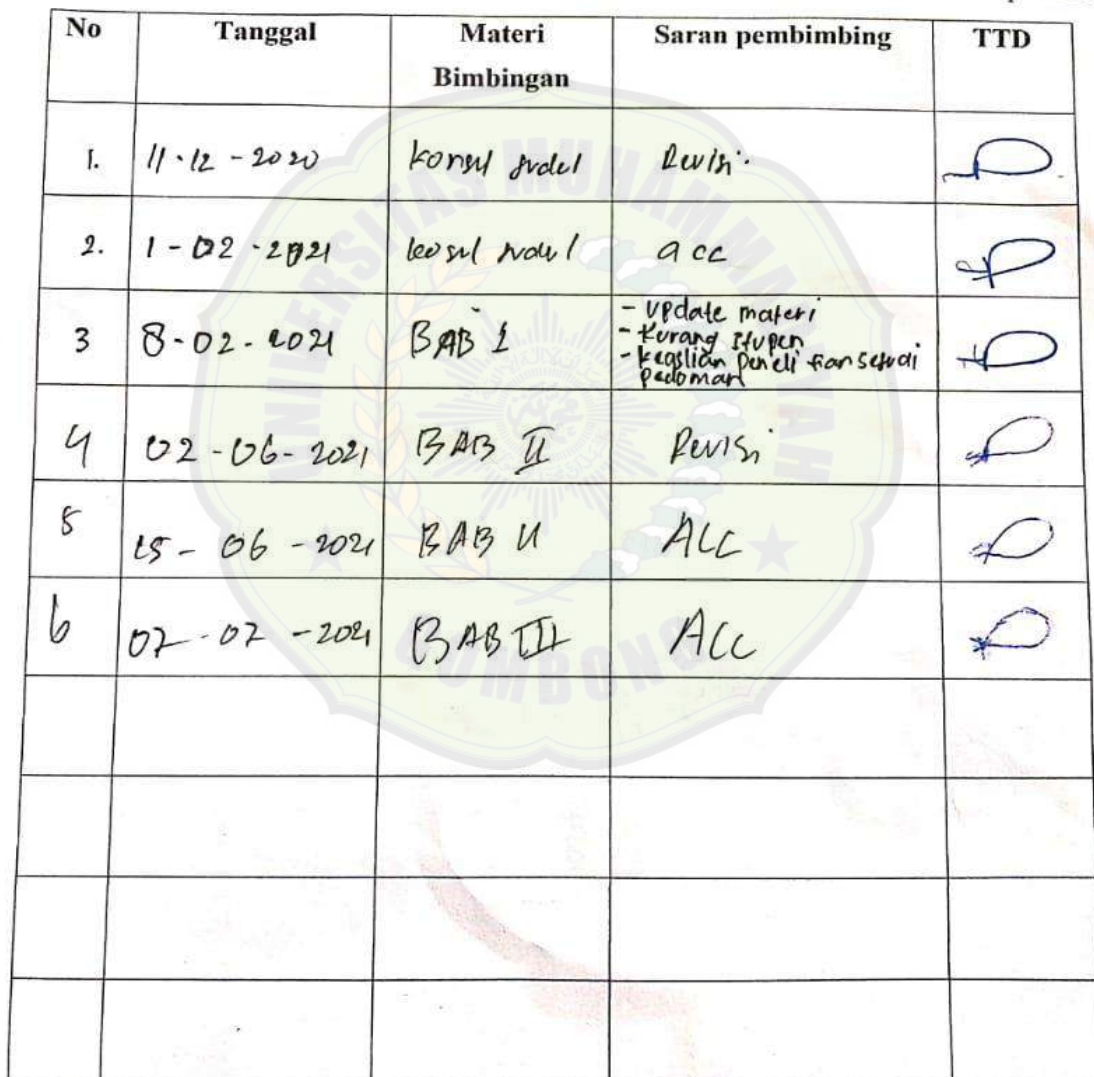 No Tanggal Materi Bimbingan Saran pembimbing TTD
1. 11-12-2020 Konsul judul Revisi
2. 1-02-2021 kosul judul acc
3 8-02-2021 BAB I - Update materi
- Kurang Stupen
- keaslian Penelitian sesuai pedoman
4 02-06-2021 BAB II Revisi
5 15-06-2021 BAB II ACC
6 07-07-2021 BAB III ACC
UNIVERSITAS MUHAMMADIYAH
GOMBONG